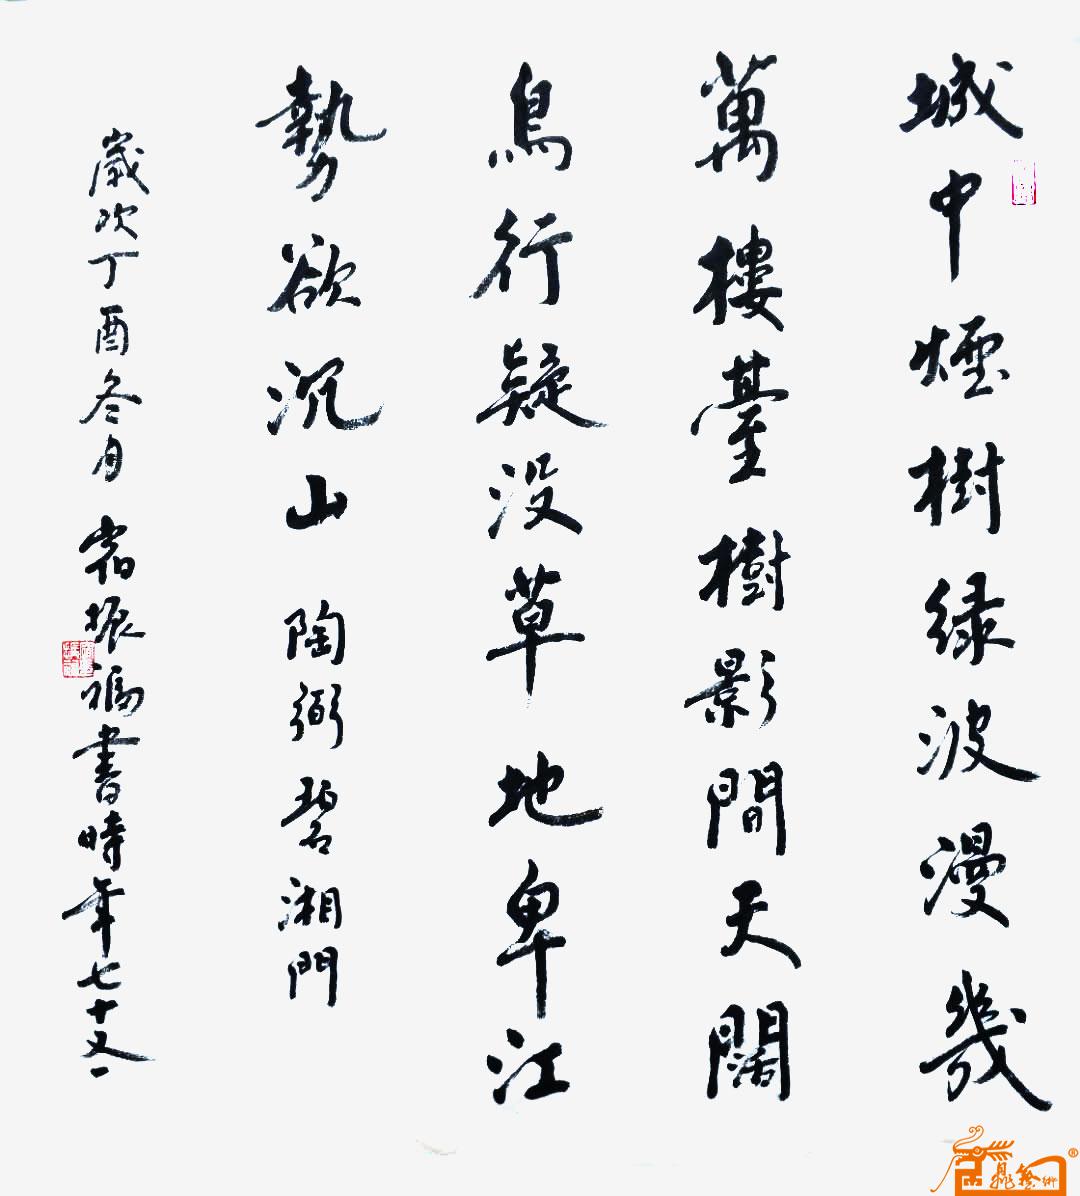 城中煙樹緑波漫幾
萬樓臺樹影間天闊
鳥行疑没草地卑江
勢欲沉山 陶弼碧湘門
歲次丁酉冬月 宿振福書時年七十又一